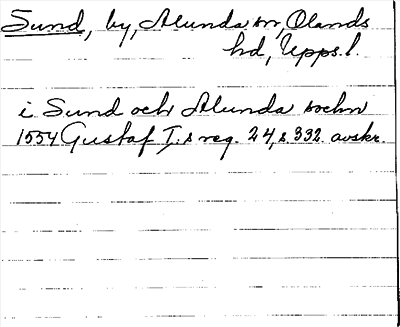 Sund, by, Alunda sn, Olands
hd, Upps. l.
i Sund och Alunda sochn
1554 Gustaf I:s reg. 24, s. 332. avskr.